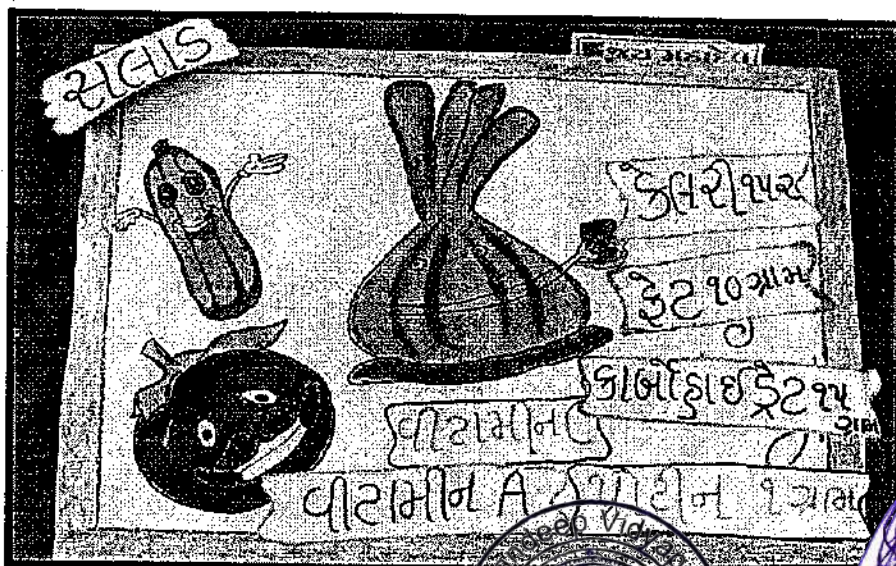 સલાડ
કેલરી ૧૫૨
ફેટ ૧૦ ગ્રામ
કાર્બોહાઈડ્રેટ ૧૫
ગ્રામ
વીટામીન C
વીટામીન A
પ્રોટીન ૧ ગ્રામ